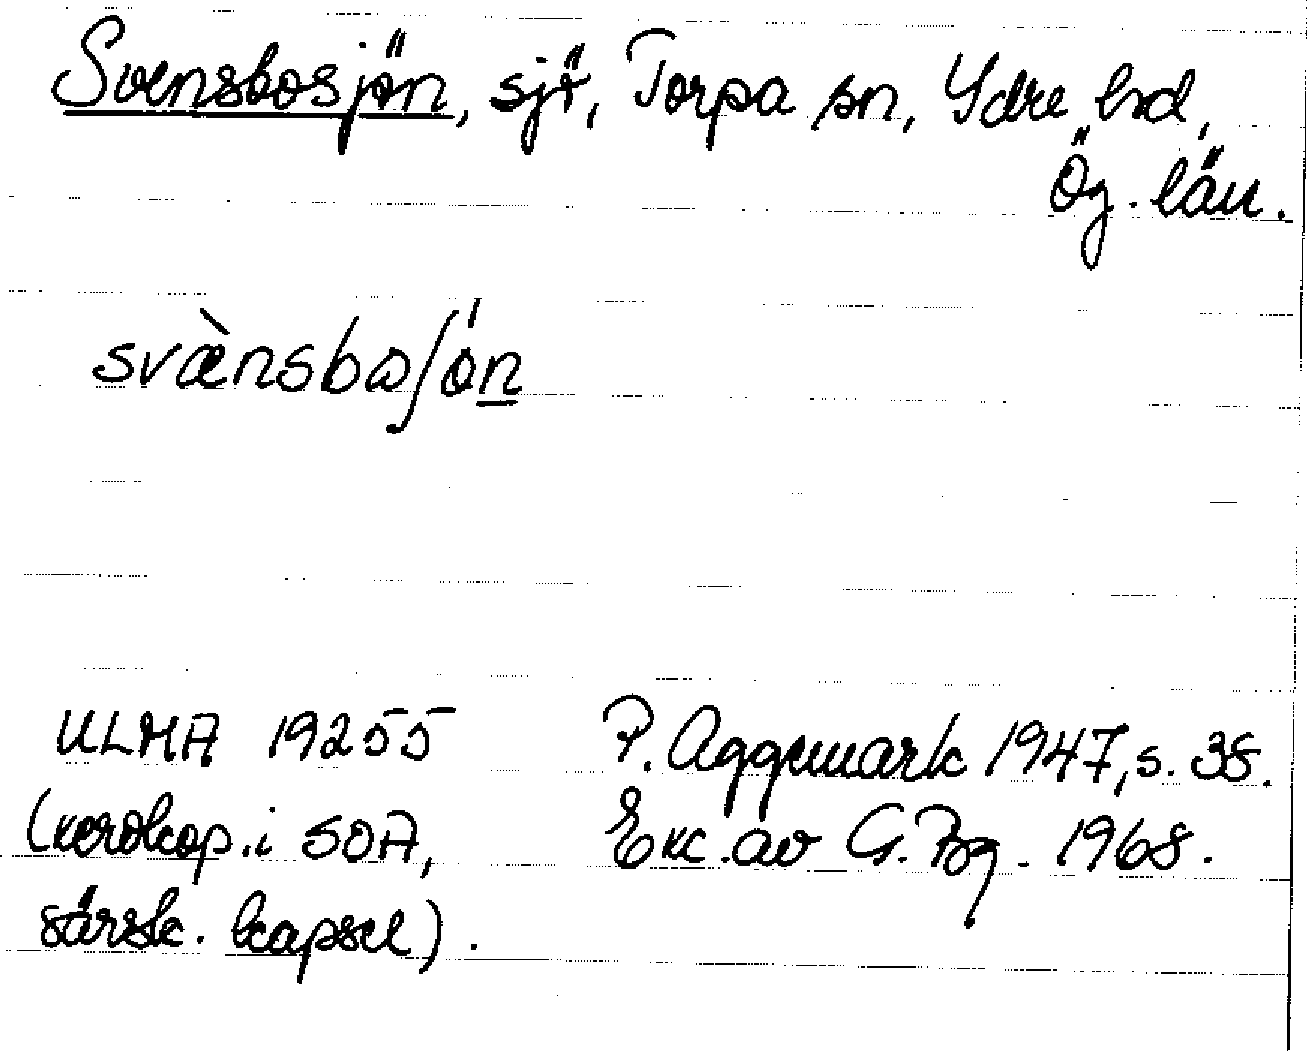 Svensbosjön, sjö, Torpa sn, Ydre hd,
Ög. län.
svæ̀nsboʃön
ULMA 19255
(xerokop. i SOA,
särsk. kapsel).
P. Aggemark 1947, s. 38.
Exc. av G. Bg. 1968.